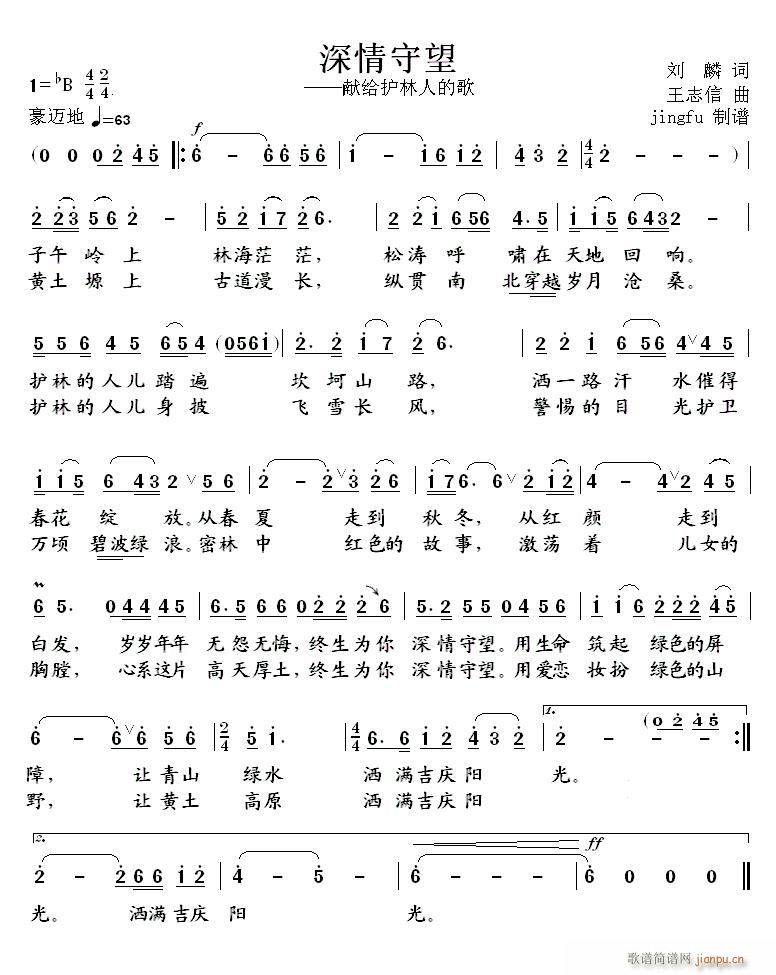 深情守望
——献给护林人的歌
1=♭B 4/4 2/4
豪迈地 ♩=63
刘 麟 词
王志信 曲
jingfu 制谱
(0 0 0 2 4 5 ‖: 6 - 6 6 5 6 | 1 - 1 6 1 2 | 4 3 2 | 4/4 2 - - - ) |
2 2 3 5 6 2 - | 5 2 1 7 2 6. | 2 2 1 6 5 6 4. 5 | 1 1 5 6 4 3 2 2 - |
子午岭上 林海茫茫， 松涛呼 啸在天地回响。
黄土塬上 古道漫长， 纵贯南 北穿越岁月沧桑。
5 5 6 4 5 6 5 4 (0 5 6 1) | 2. 2 1 7 2 6. | 2 2 1 6 5 6 4 ∨ 4 4 5 |
护林的人儿踏遍 坎坷山路， 洒一路汗 水催得
护林的人儿身披 飞雪长风， 警惕的目 光护卫
1 1 5 6 4 3 2 ∨ 5 6 | 2 - 2 ∨ 2 3 | 1 7 6. 6 ∨ 2 1 2 | 4 - 4 ∨ 2 4 5 |
春花绽放。从春夏 走到秋冬， 从红颜 走到
万顷碧波绿浪。密林中 红色的故事， 激荡着 儿女的
6 5. 0 4 4 4 4 5 | 6. 5 6 6 0 2 2 2 6 | 5. 2 5 5 0 4 5 6 | 1 1 6 2 2 2 4 5 |
白发， 岁岁年年 无怨无悔，终生为你 深情守望。用生命 筑起 绿色的屏
胸膛， 心系这片 高天厚土，终生为你 深情守望。用爱恋 妆扮 绿色的山
6 - 6 ∨ 6 5 6 | 2/4 5 1. | 4/4 6. 6 1 2 4 3 2 | 1. 2 - - (0 2 4 5 :‖
障， 让青山 绿水 洒满吉庆阳 光。
野， 让黄土 高原 洒满吉庆阳
2.
2 - 2 6 6 1 2 | 4 - 5 - | 6 - - - | ff 6 0 0 0 ‖
光。 洒满吉庆 阳 光。
歌谱简谱网
jianpu.cn